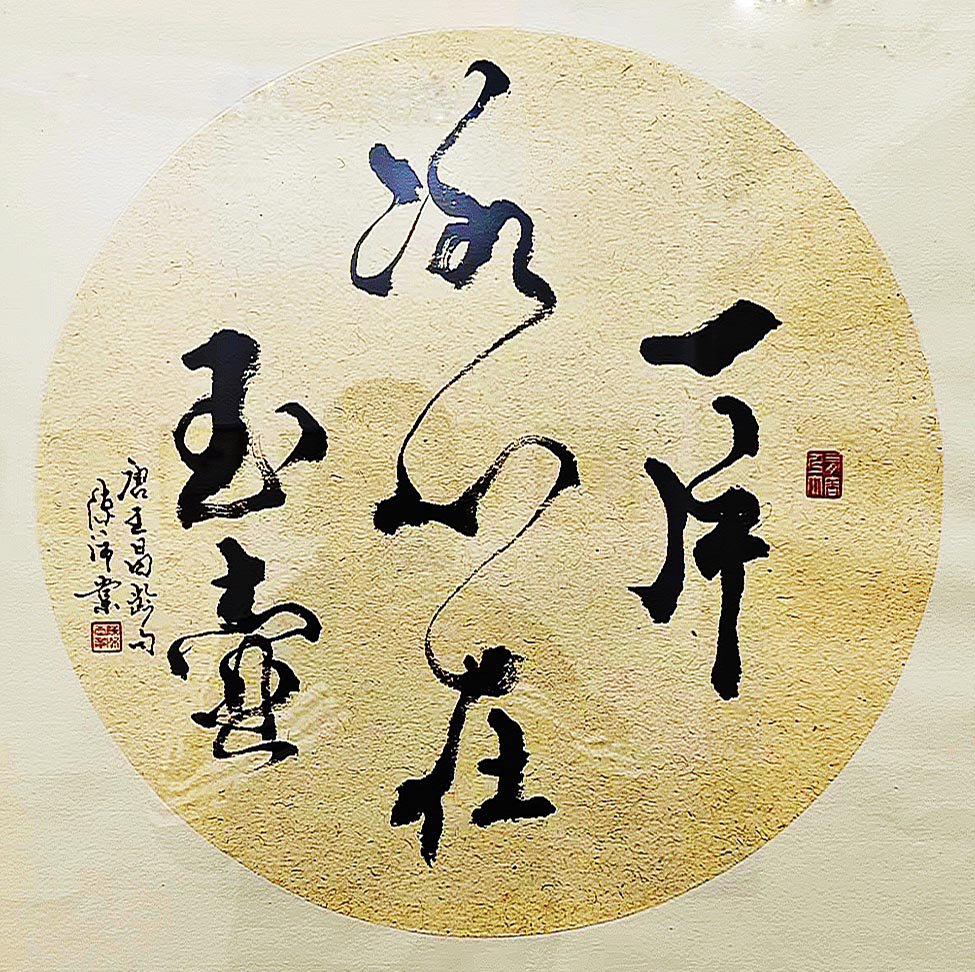 一片
冰心在
玉壶
唐王昌龄句
陈沛棠